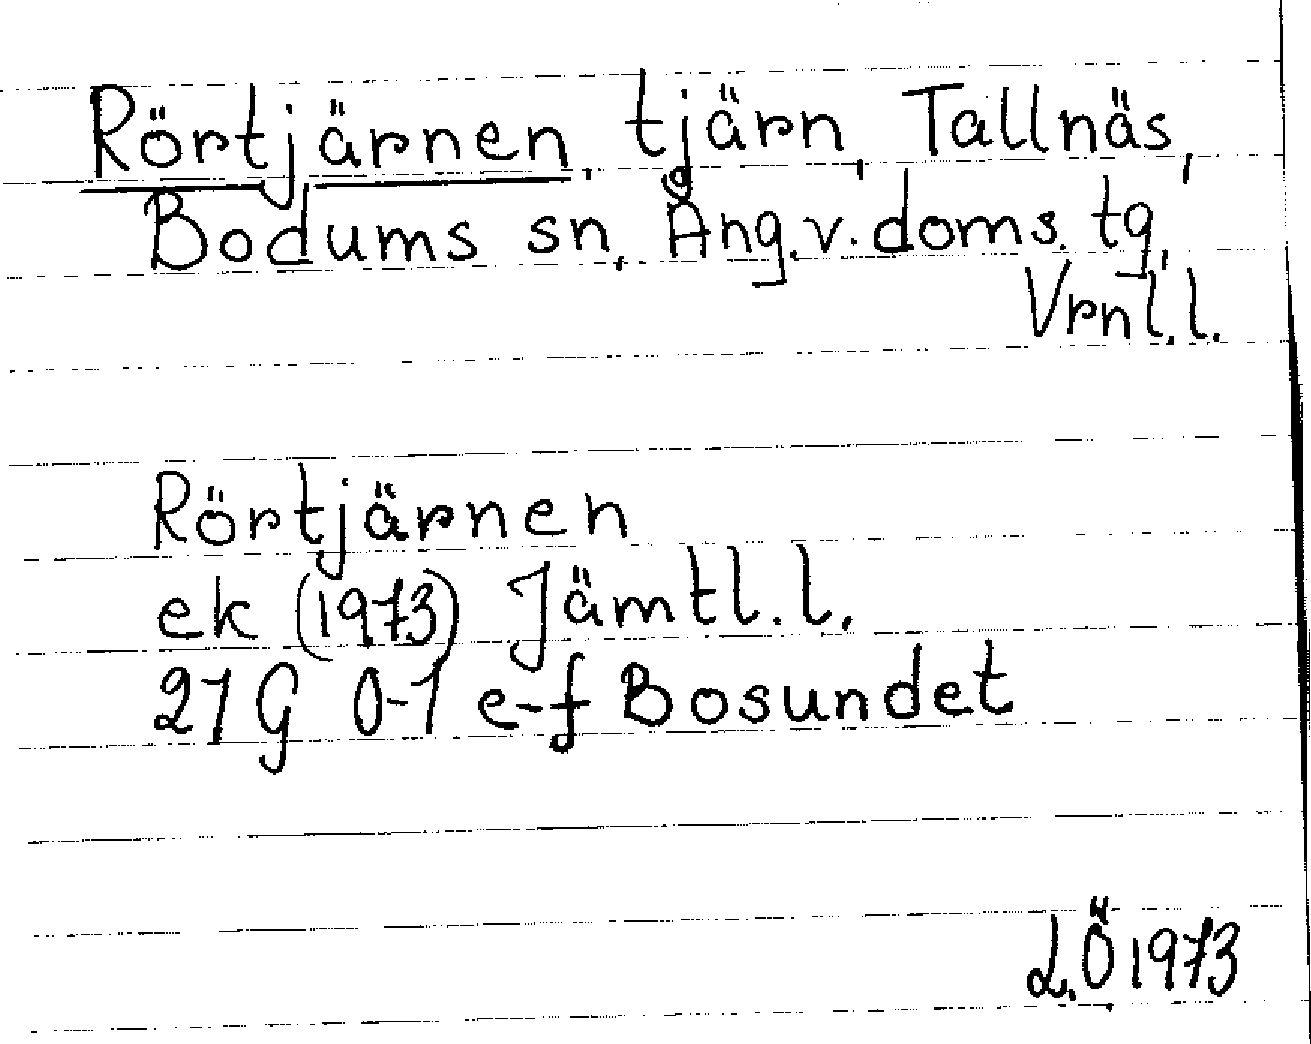 Rörtjärnen, tjärn, Tallnäs,
Bodums sn, Ång.v.doms.tg,
Vrnl.l.
Rörtjärnen
ek (1973) Jämtl.l.
21G 0-1 e-f Bosundet
L.Ö 1973